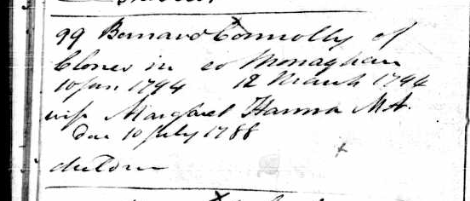 99 Bernard Connolly of
Clones in co Monaghan
10 Jan 1794 12 March 1794
wife Margaret Hanna MA.
Due 10 July 1788
children